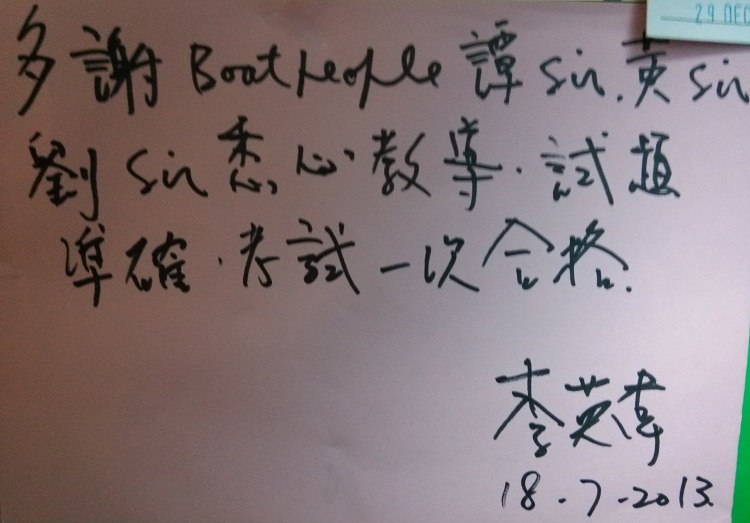 29 DEC
多謝 Boatpeople 譚 sir. 黃 sir
劉 sir 悉心教導. 試題
準確. 考試一次合格.
李英偉
18-7-2013.